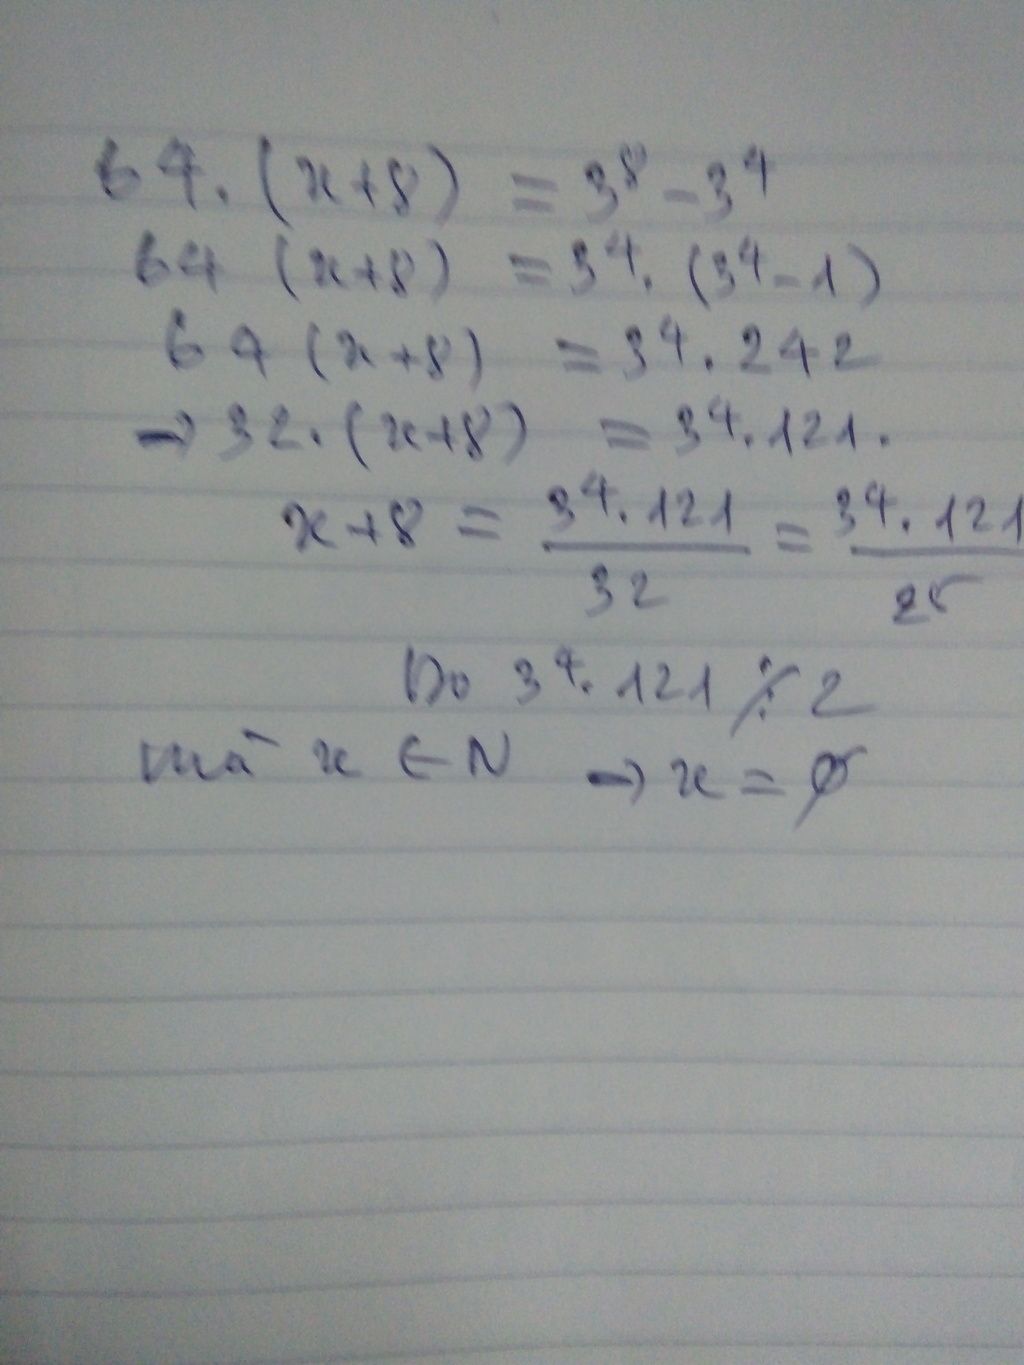 64. (x+8) = 3⁸ - 3⁴
64 (x+8) = 3⁴. (3⁴ - 1)
64 (x+8) = 3⁴. 242
→ 32. (x+8) = 3⁴. 121.
x+8 = 3⁴. 121 / 32 = 3⁴. 121 / 2⁵
Do 3⁴. 121 ⋮̸ 2
mà x ∈ N → x = ∅